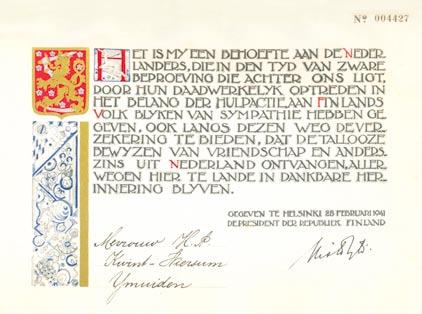 No 004427
HET IS MY EEN BEHOEFTE AAN DE NEDER-
LANDERS, DIE IN DEN TYD VAN ZWARE
BEPROEVING DIE ACHTER ONS LIGT,
DOOR HUN DAADWERKELYK OPTREDEN IN
HET BELANG DER HULPACTIE, AAN FINLANDS
VOLK BLYKEN VAN SYMPATHIE HEBBEN GE-
GEVEN, OOK LANGS DEZEN WEG DE VER-
ZEKERING TE BIEDEN, DAT DE TALLOOZE
BEWYZEN VAN VRIENDSCHAP EN ANDERS-
ZINS UIT NEDERLAND ONTVANGEN, ALLER-
WEGEN HIER TE LANDE IN DANKBARE HER-
INNERING BLYVEN.
GEGEVEN TE HELSINKI 28 FEBRUARI 1941
DE PRESIDENT DER REPUBLIEK FINLAND
Mevrouw H.
Kwint-
Ymuiden